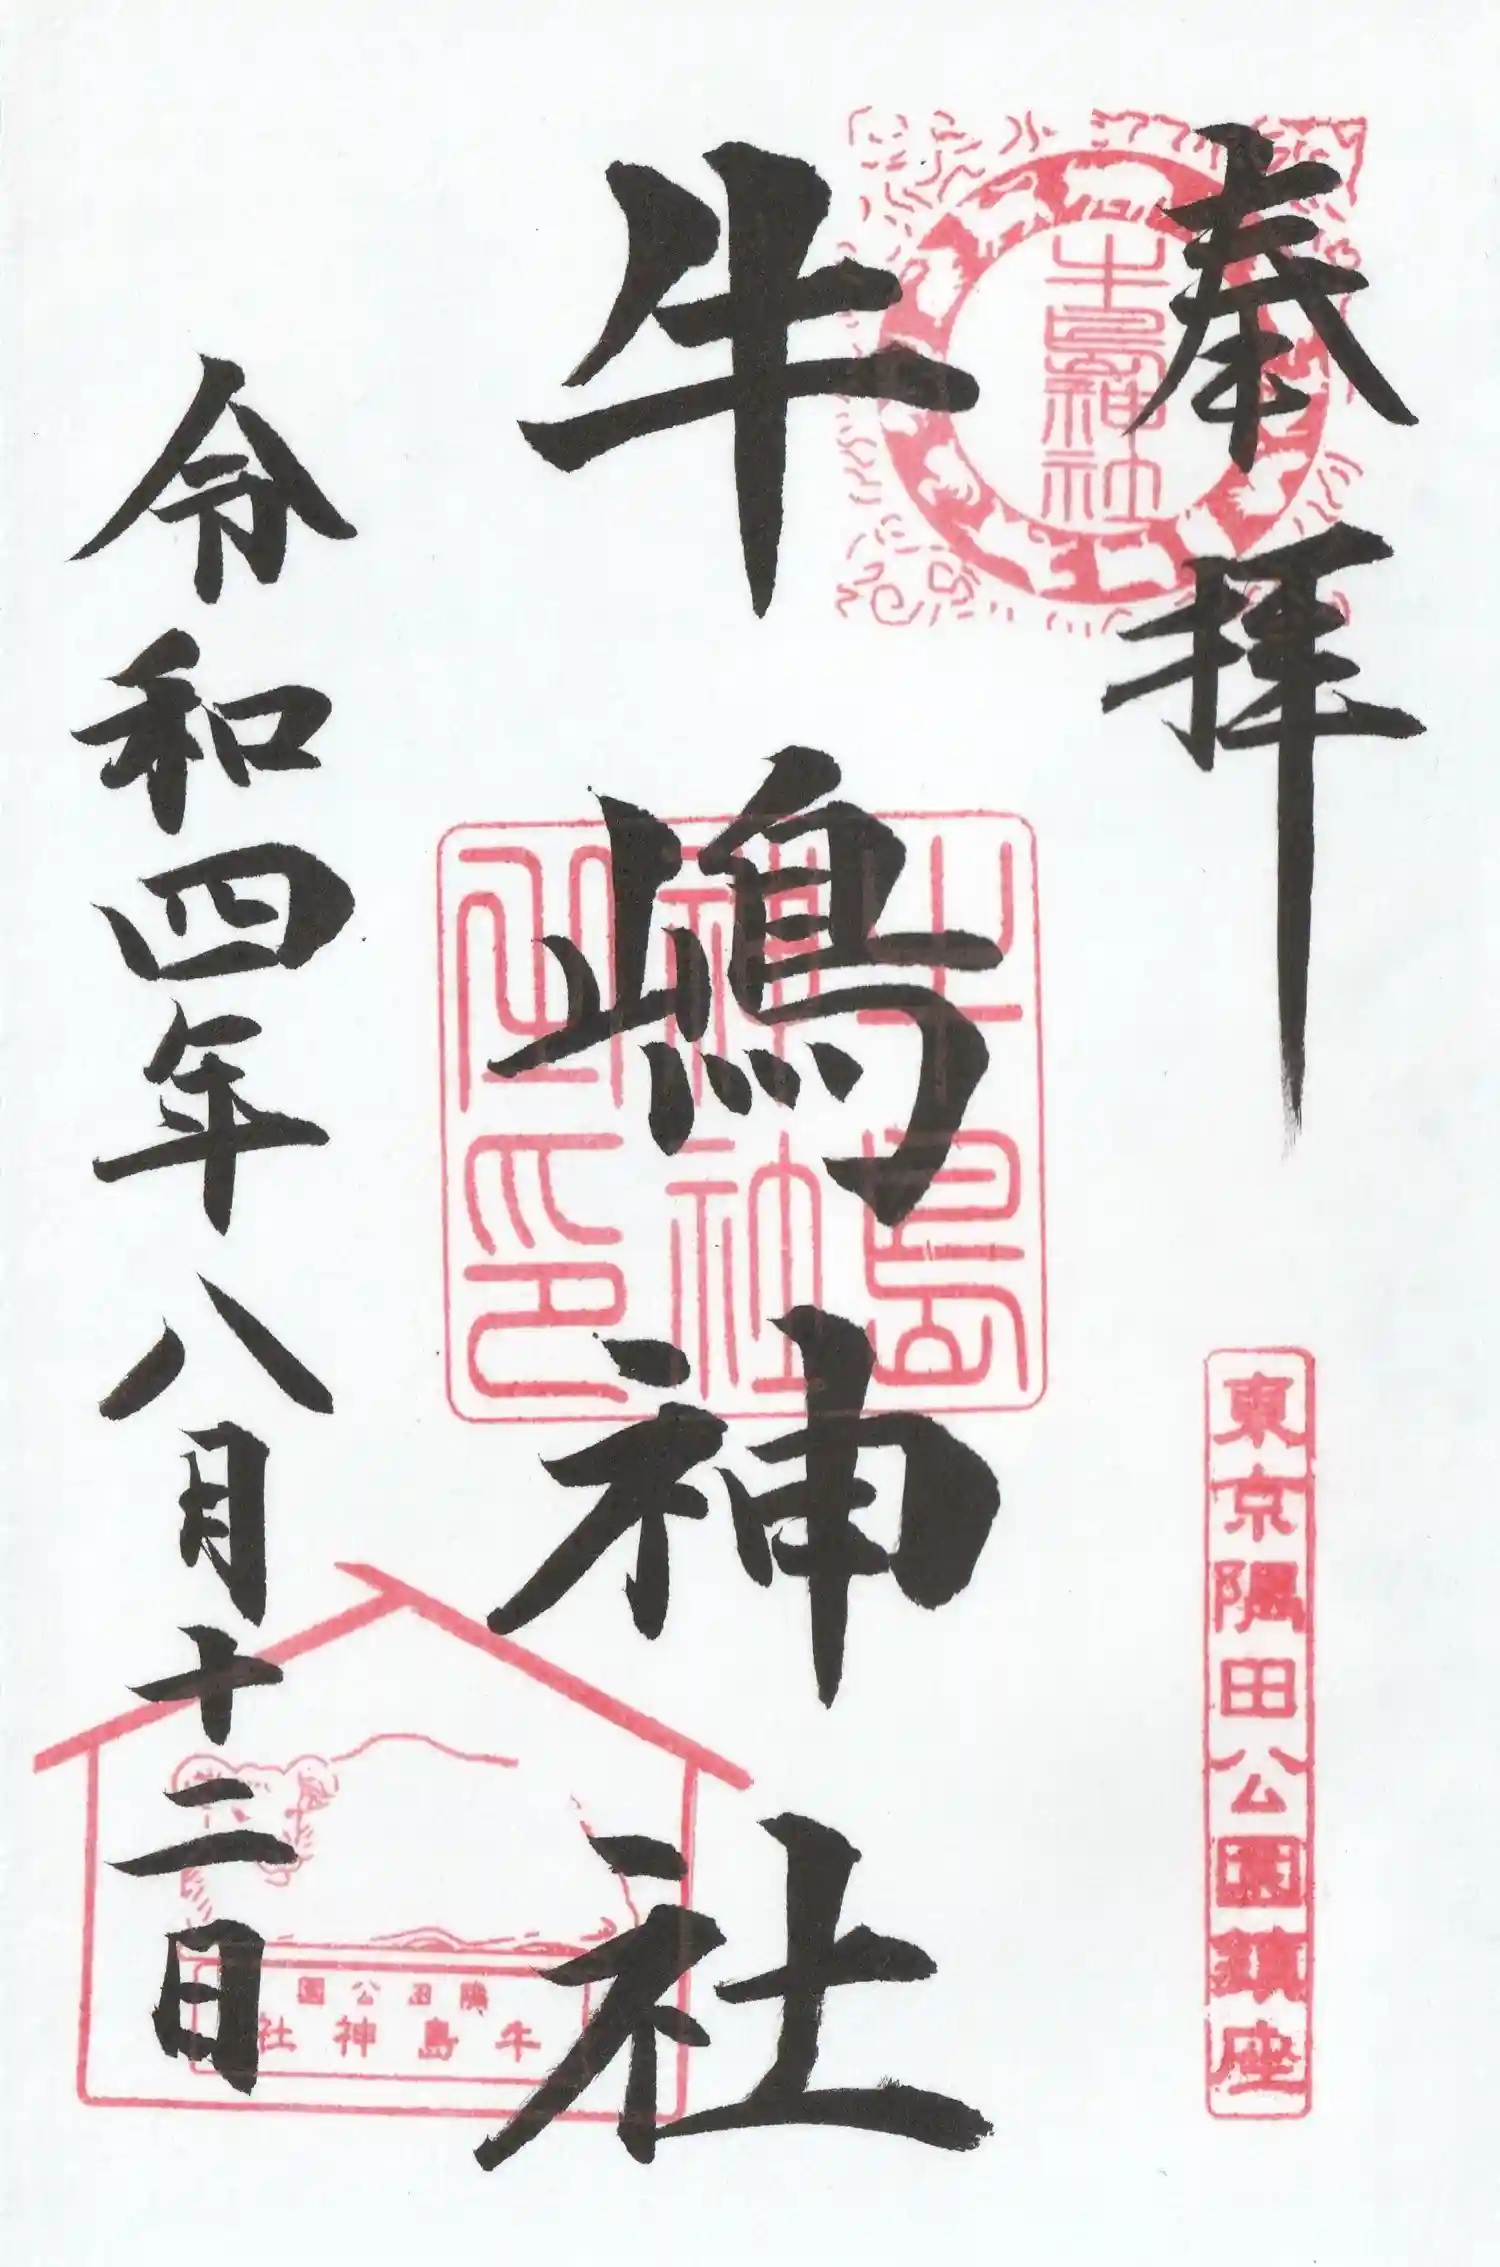 奉拝
牛島神社
東京隅田公園鎮座
牛嶋神社
牛島
神社
之印
令和四年八月十二日
隅田公園
牛島神社